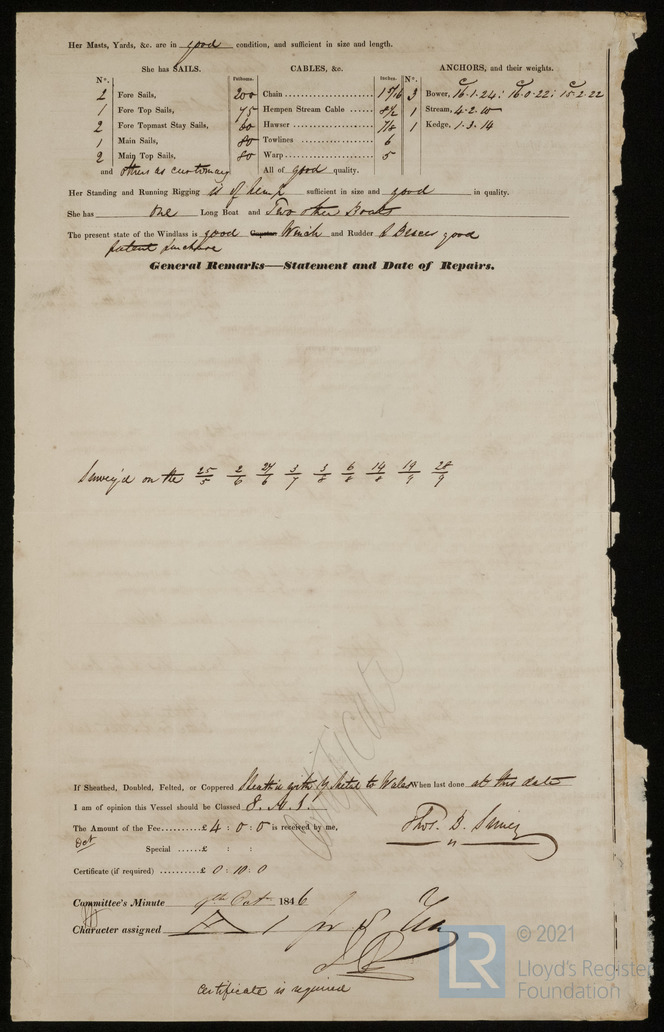 Her Masts, Yards, &c. are in good condition, and sufficient in size and length.
She has SAILS. CABLES, &c. ANCHORS, and their weights.
No. Fathoms. Inches. No.
2 Fore Sails, 200 Chain 1 5/16 3 Bower, 16-1-24: 16-0-22: 15-2-22
1 Fore Top Sails, 75 Hempen Stream Cable 8 1/2 1 Stream, 4-2-10
2 Fore Topmast Stay Sails, 60 Hawser 7 1/2 1 Kedge, 1-3-14
1 Main Sails, 80 Towlines 6
2 Main Top Sails, 80 Warp 5
and others as customary All of good quality.
Her Standing and Running Rigging is of hemp sufficient in size and good in quality.
She has one Long Boat and Two other Boats
The present state of the Windlass is good Capstan Winch and Rudder good
patent purchase
General Remarks—Statement and Date of Repairs.
Survey'd on the 25/5 2/6 27/6 3/7 3/8 6/8 14/8 19/9 28/9
Certificate
If Sheathed, Doubled, Felted, or Coppered When last done at this date
I am of opinion this Vessel should be Classed 8. A. 1.
The Amount of the Fee £4 : 0 : 0 is received by me,
Oct
Special £ : :
Certificate (if required) £ 0 : 10 : 0
Committee's Minute 9th Oct 1846
Character assigned A 1 for 8
Certificate is required
LR
© 2021
Lloyd's Register
Foundation